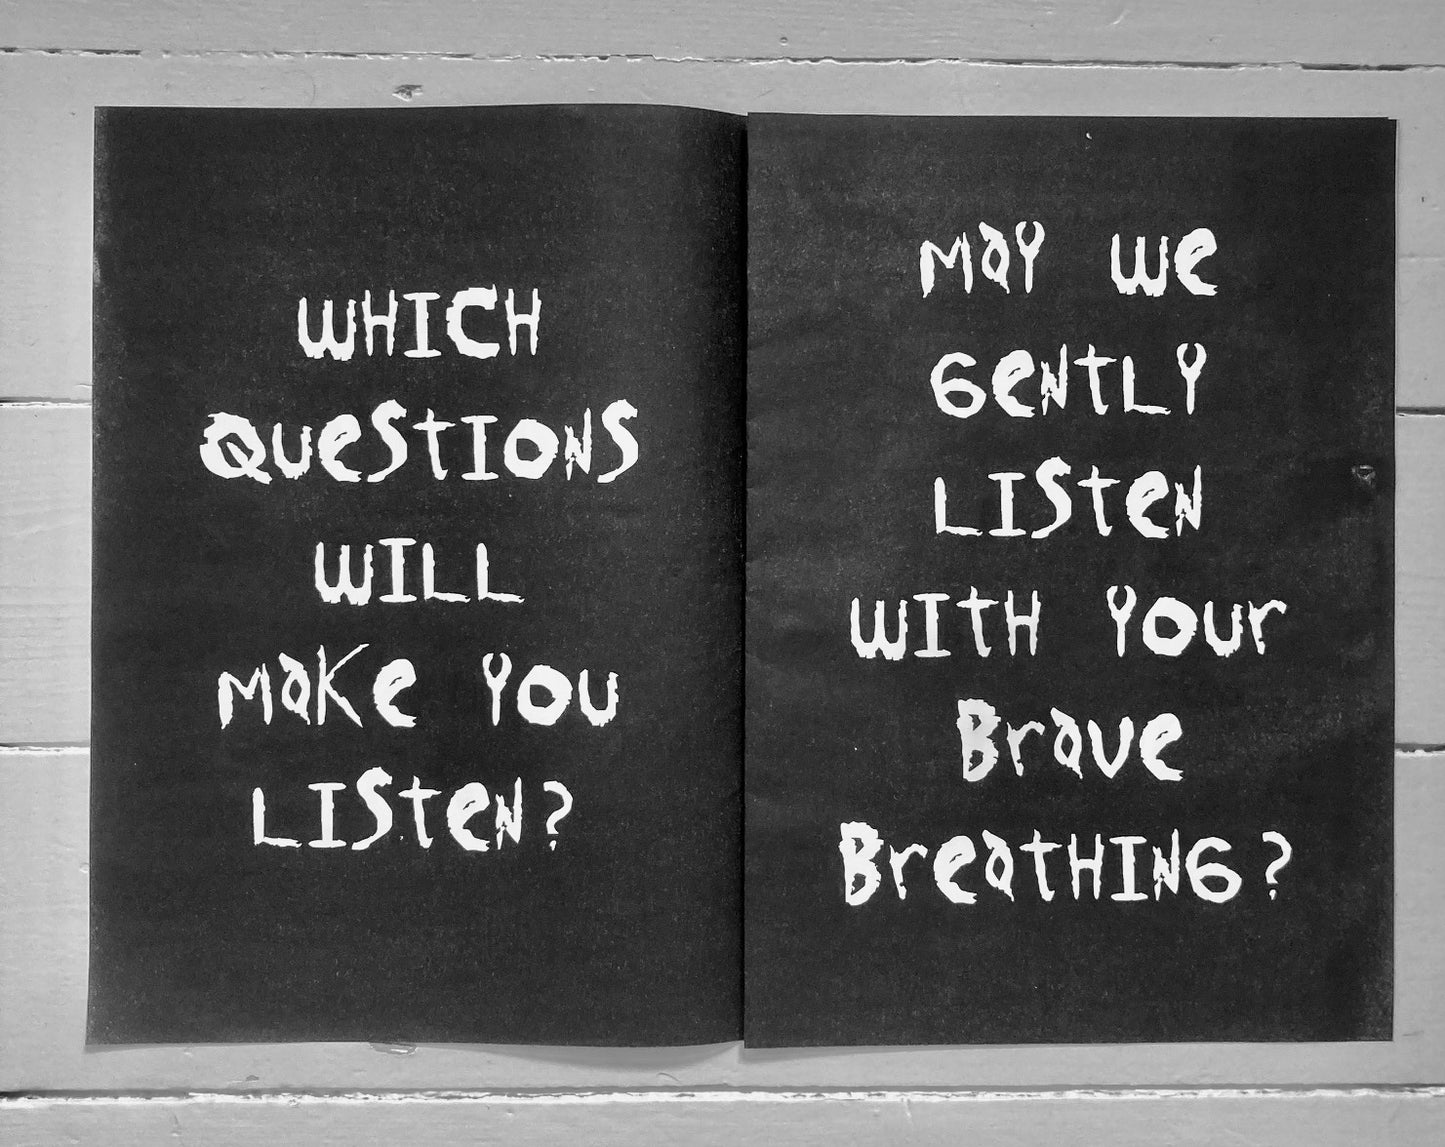 WHICH
QUeStIONS
WILL
MaKe YOU
LISteN?
MaY We
GeNtLY
LISteN
WItH YOUr
BraVe
BreatHING?